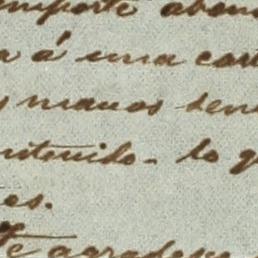 mporte aban
a á una car
s manos ten
ntenido. lo q
es.
te agradece